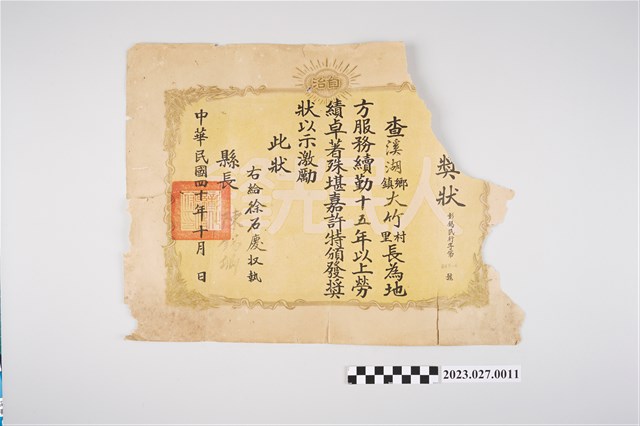 自治
獎狀
查溪湖鄉鎮大竹村里長為地
方服務續勤十五年以上勞
績卓著殊堪嘉許特頒發獎
狀以示激勵
此狀
右給徐石慶收執
縣長
中華民國四十年十月 日
2023.027.0011